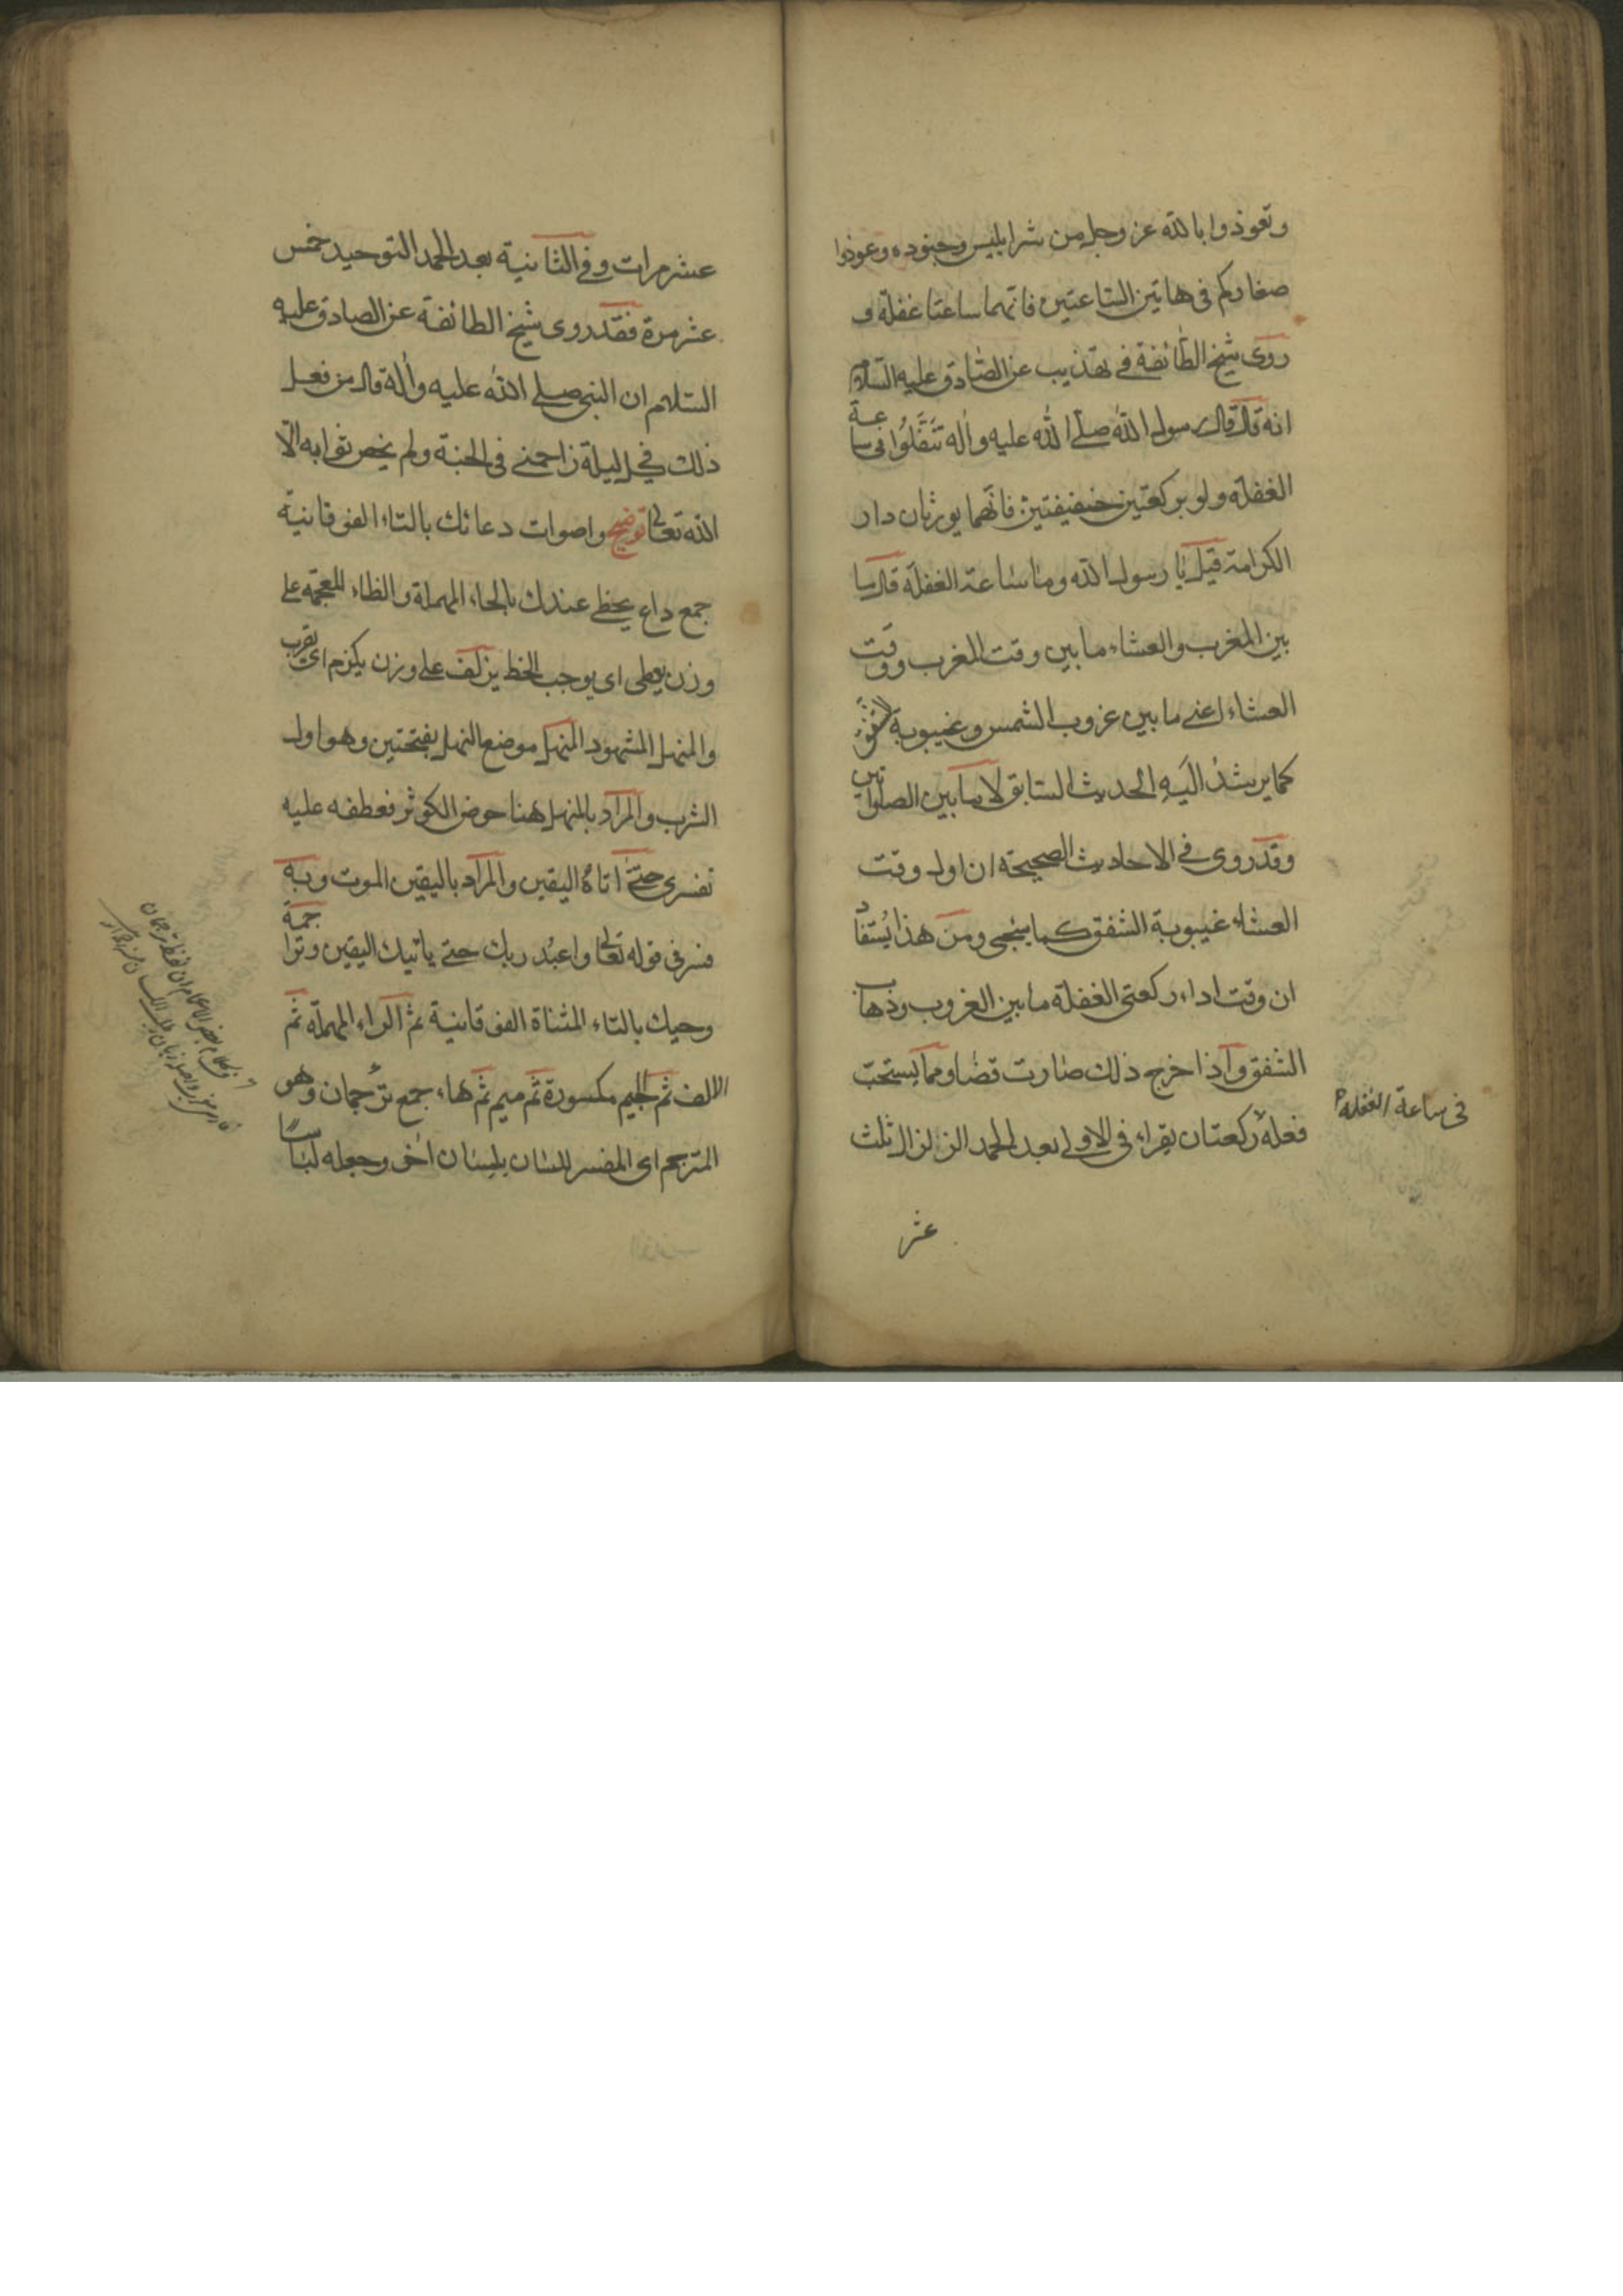 وتعوذوا بالله عز وجل من شر ابليس وجنوده وعوذوا
صغاركم فى هاتين الساعتين فانهما ساعتا غفلة و
روى شيخ الطائفة فى تهذيب عن الصادق عليه السلام
انه قال قال رسول الله صلى الله عليه واله تنفلوا فى ساعة
الغفلة ولو بركعتين خفيفتين فانهما يورثان دار
الكرامة قيل يا رسول الله وما ساعة الغفلة قال ما
بين المغرب والعشاء ما بين وقت المغرب ووقت
العشاء اعنى ما بين غروب الشمس وغيبوبة الشفق
كما يرشد اليه الحديث السابق لا ما بين الصلواتين
وقد روى فى الاحاديث الصحيحة ان اول وقت
العشاء غيبوبة الشفق كما سيجى ومن هذا يستفاد
ان وقت اداء ركعتى الغفلة ما بين الغروب وذهاب
الشفق واذا خرج ذلك صارت قضا ومما يستحب
فعله ركعتان يقراء فى الاولى بعد الحمد الزلزال ثلث
فى ساعة الغفلة
عشر
عشر مرات وفى الثانية بعد الحمد التوحيد خمس
عشر مرة فقد روى شيخ الطائفة عن الصادق عليه
السلام ان النبى صلى الله عليه واله قال من فعل
ذلك فى كل ليلة زاحمنى فى الجنة ولم يحص ثوابه الا
الله تعالى توضيح واصوات دعاتك بالتاء الفوقانية
جمع داع يحظى عندك بالحاء المهملة والظاء المعجمة على
وزن يعطى اى يوجب الحظ يزلف على وزن يكرم اى يقرب
والمنهل المشهود المنهل موضع النهل بفتحتين وهو اول
الشرب والمراد بالمنهل هنا حوض الكوثر فعطفه عليه
تفسرى حتى اتاه اليقين والمراد باليقين الموت وبه
فسر فى قوله تعالى واعبد ربك حتى ياتيك اليقين وتراجمة
وحيك بالتاء المثناة الفوقانية ثم الراء المهملة ثم
الالف ثم الجيم مكسورة ثم ميم ثم هاء جمع ترجمان وهو
المترجم اى المفسر للسان بلسان اخر وجعله لباسا